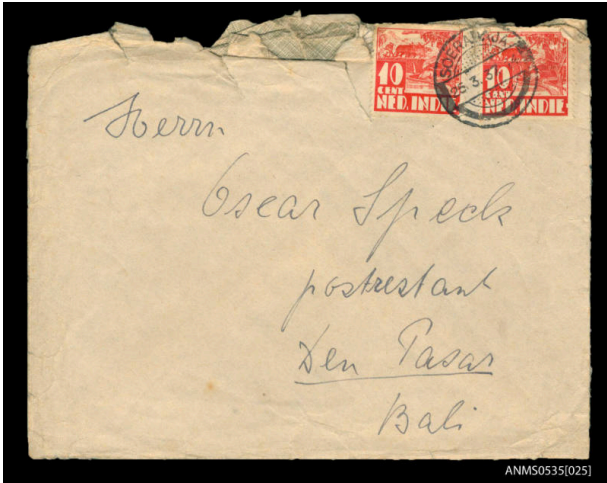 10
CENT
NED. INDIE
10
CENT
NED. INDIE
SOERABAJA
26.3.37
Herrn
Oscar Speck
postrestant
Den Pasar
Bali
ANMS0535[025]